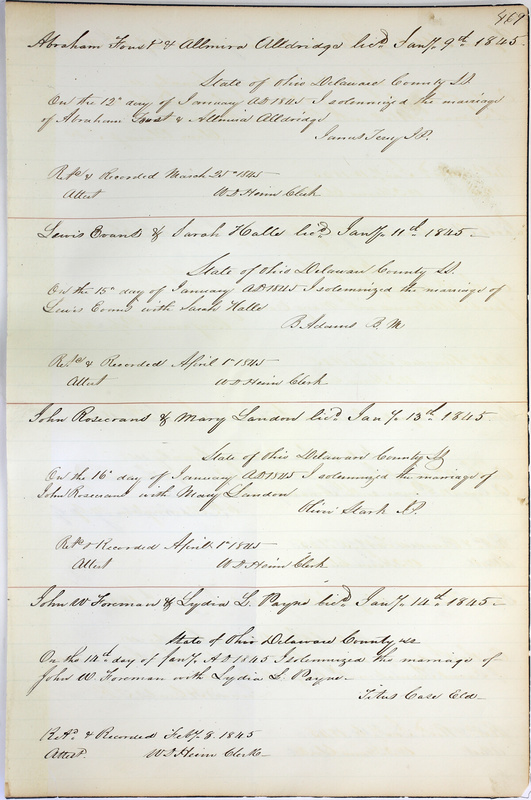 469
Abraham Foust & Allmira Alldridge licd. Jany. 9th 1845
State of Ohio Delaware County SS.
On the 12th day of January AD 1845 I solemnized the marriage
of Abraham Foust & Allmira Alldridge
James Terry J.P.
Retd & Recorded March 25th 1845
Attest W D Heim Clerk
Lewis Evans & Sarah Halle licd. Jany. 11th 1845
State of Ohio Delaware County SS.
On the 15th day of January AD 1845 I solemnized the marriage of
Lewis Evans with Sarah Halle
B. Adams B. M
Retd & Recorded April 1st 1845
Attest W D Heim Clerk
John Rosecrans & Mary Landon licd. Jany. 13th 1845
State of Ohio Delaware County SS
On the 16th day of January AD 1845 I solemnized the marriage of
John Rosecrans with Mary Landon
Stark J.P.
Retd & Recorded April 1st 1845
Attest W D Heim Clerk
John W Foreman & Lydia L. Payne licd. Jany. 14th 1845
State of Ohio Delaware County ss
On the 14th day of Jany. A D 1845 I solemnized the marriage of
John W. Foreman with Lydia L. Payne
Titus Case Eld
Retd. & Recorded Feby. 8. 1845
Attest. W D Heim Clerk